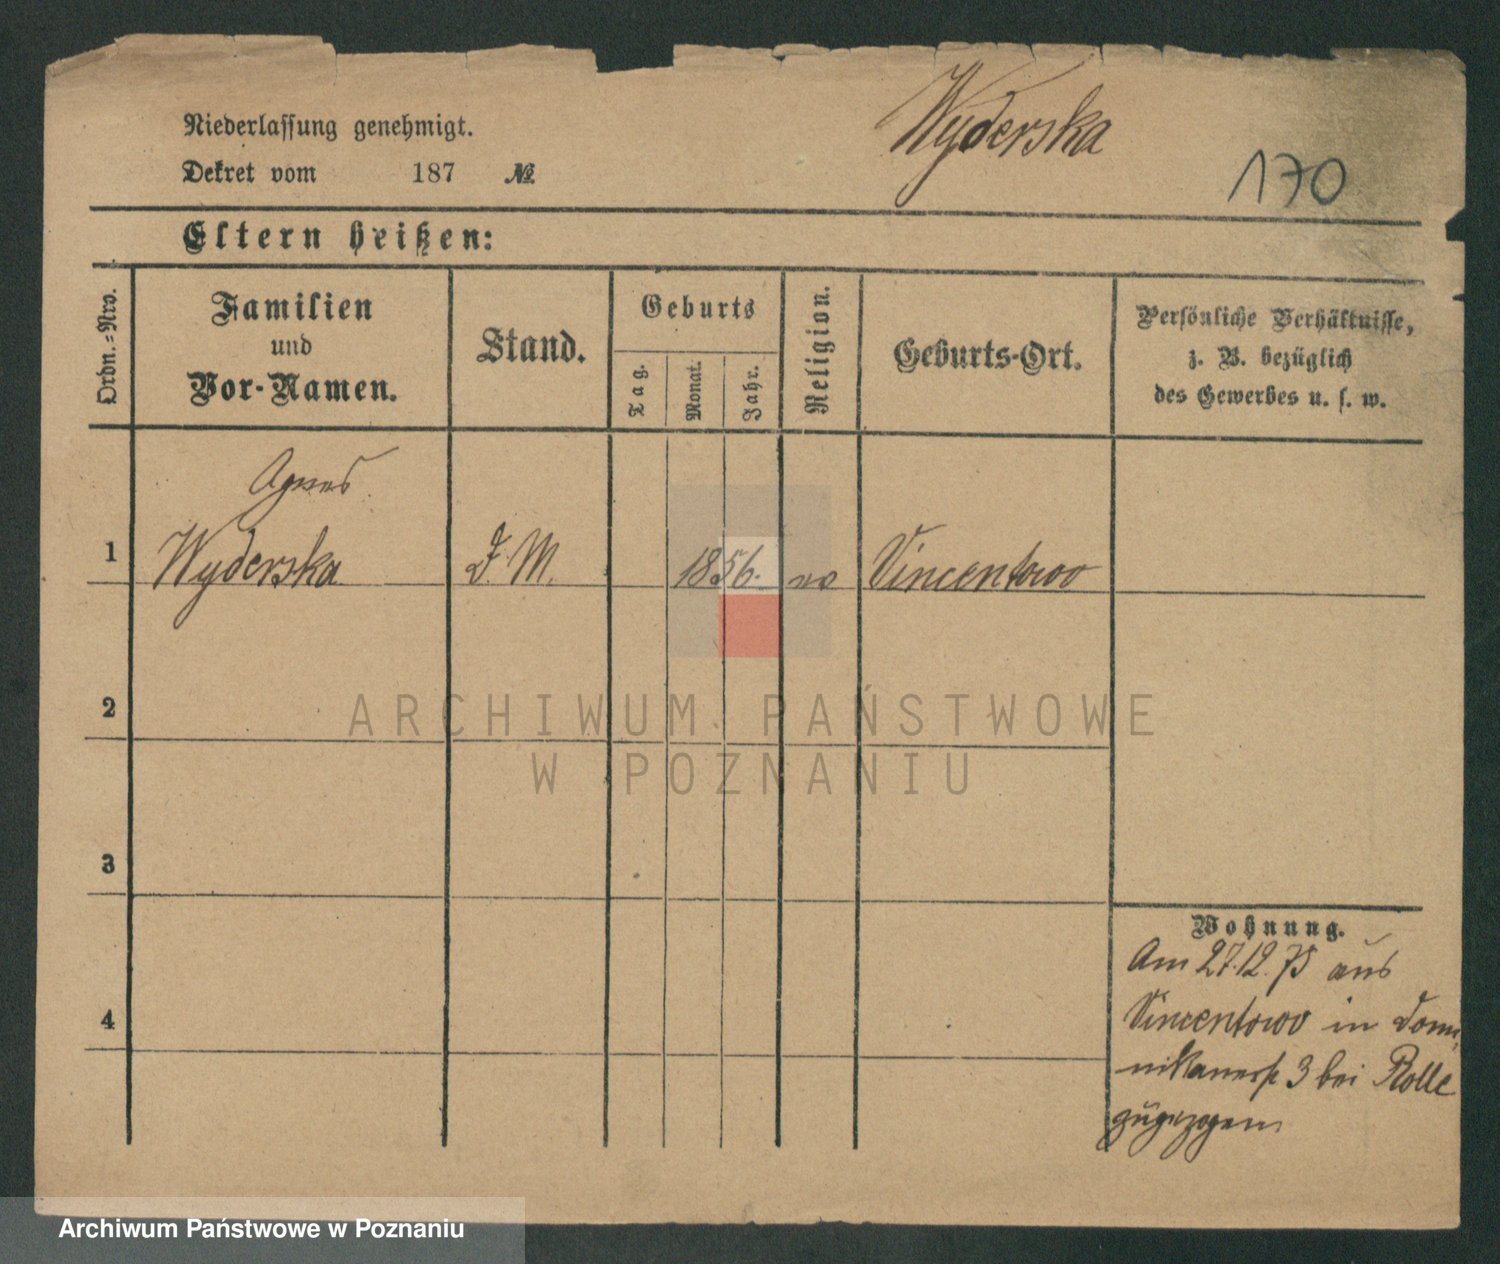 Wyderska
170
Niederlassung genehmigt.
Dekret vom 187 №
Eltern heißen:
Ordn.-Nro.
Familien
und
Vor-Namen.
Stand.
Geburts
Tag.
Monat.
Jahr.
Religion.
Geburts-Ort.
Persönliche Verhältnisse,
z. B. bezüglich
des Gewerbes u. s. w.
Agnes
1 Wyderska D. M. 1856. Vincentowo
2
3
4
Wohnung.
Am 27.12.75 aus
Vincentowo in Domi-
nikanerstr 3 bei Rolle
zugezogen
ARCHIWUM PAŃSTWOWE
W POZNANIU
Archiwum Państwowe w Poznaniu